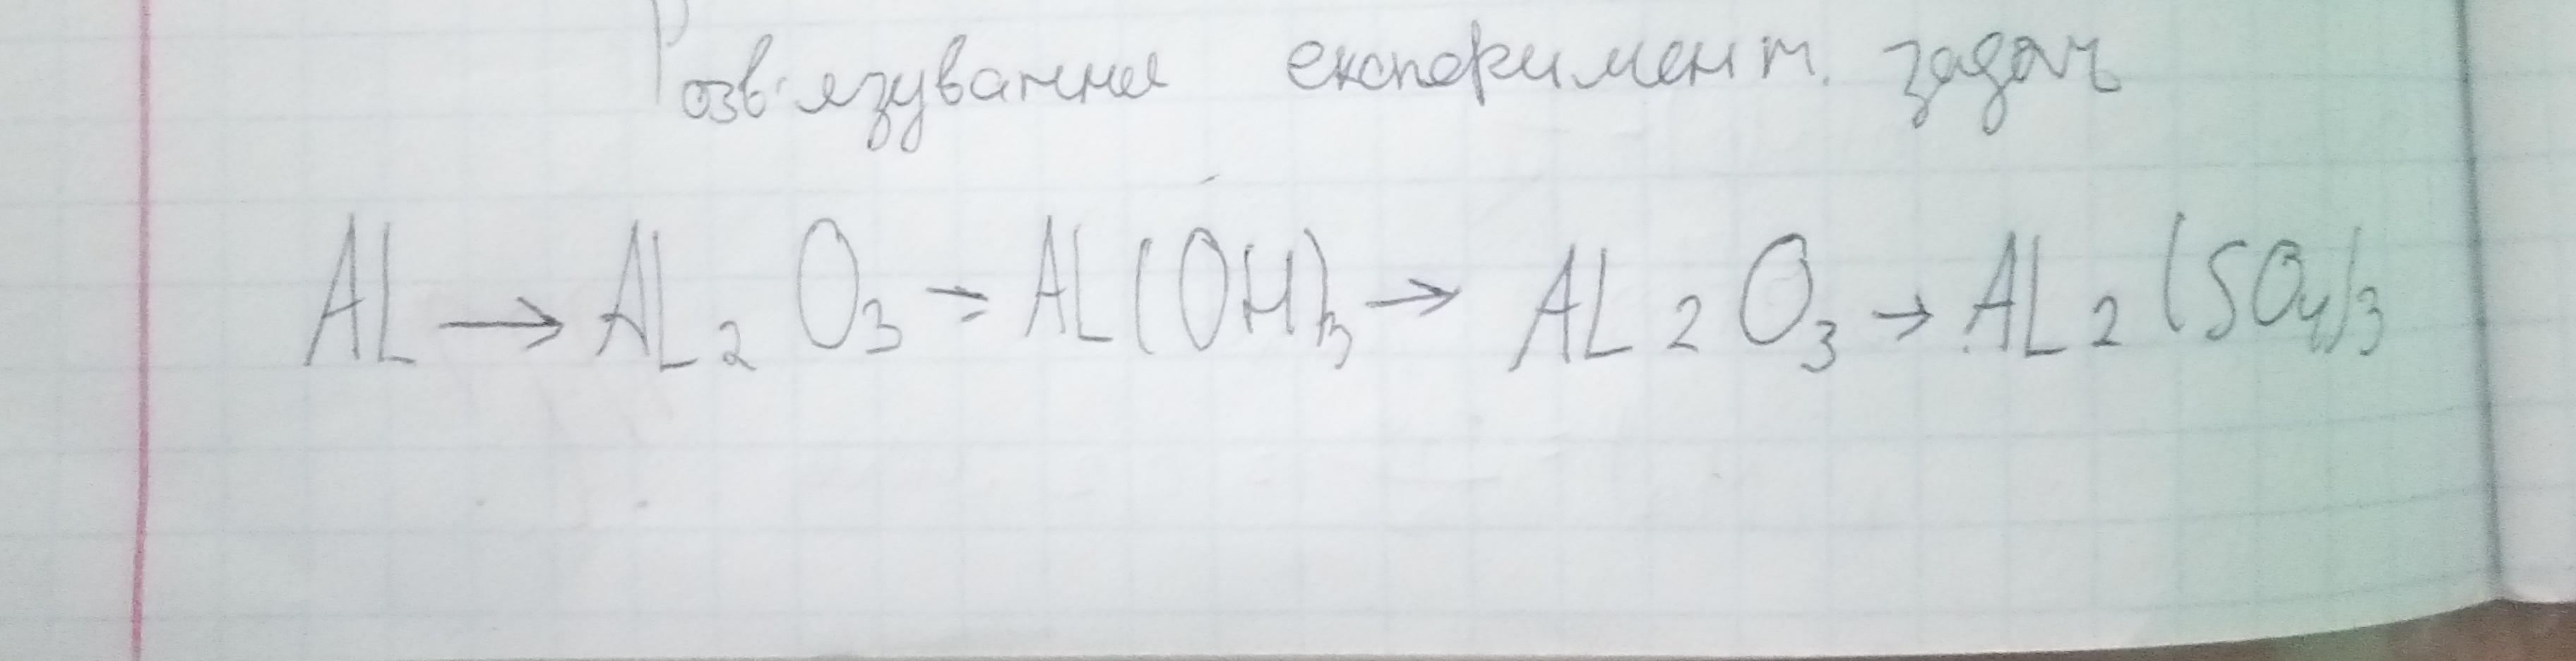 Розв'язування експеримент. задач
AL → AL₂O₃ → AL(OH)₃ → AL₂O₃ → AL₂(SO₄)₃